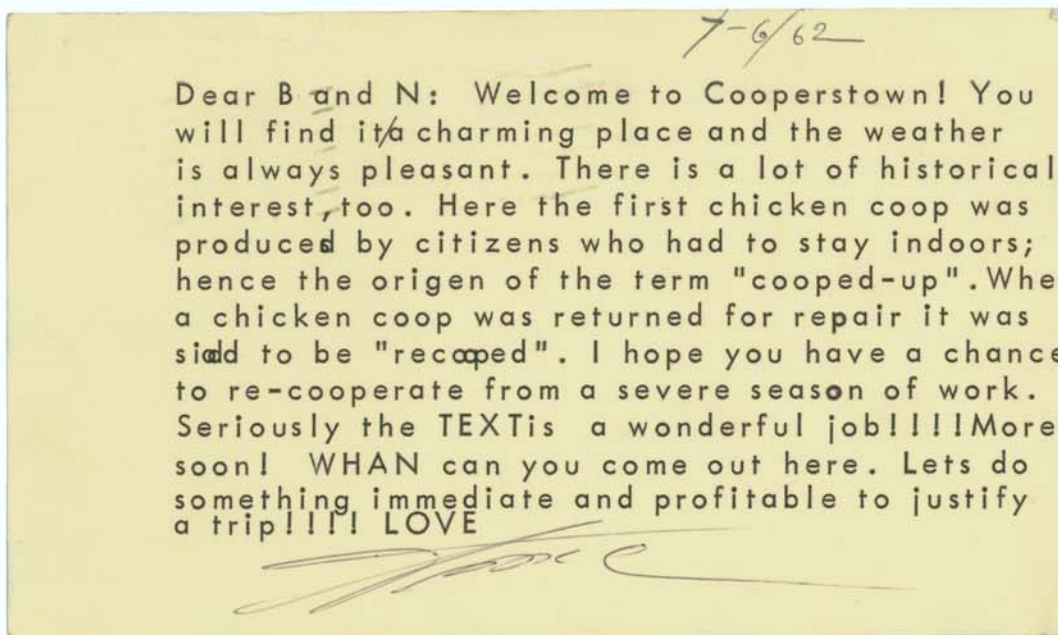 7-6/62
Dear B and N: Welcome to Cooperstown! You
will find it/a charming place and the weather
is always pleasant. There is a lot of historical
interest,too. Here the first chicken coop was
produced by citizens who had to stay indoors;
hence the origen of the term "cooped-up".Whe
a chicken coop was returned for repair it was
siadd to be "recooped". I hope you have a chance
to re-cooperate from a severe season of work.
Seriously the TEXTis a wonderful job!!!!More
soon! WHAN can you come out here. Lets do
something immediate and profitable to justify
a trip!!!! LOVE